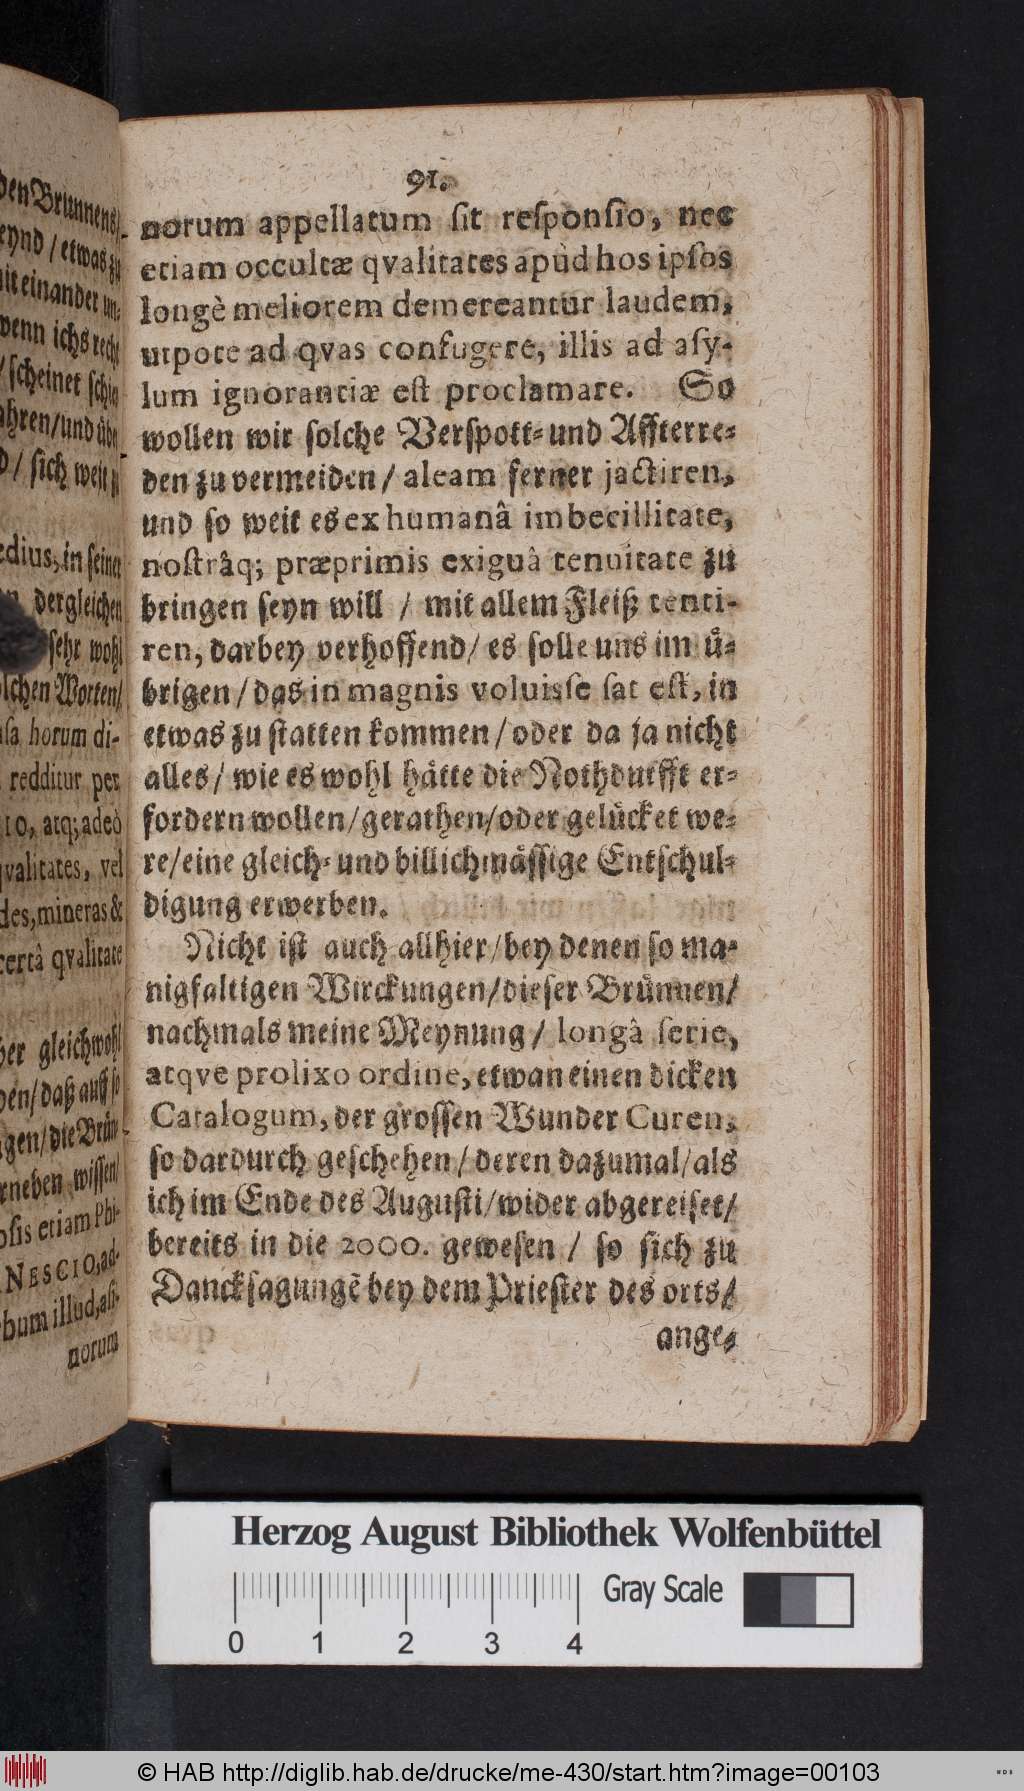 den Brunnens/
seynd / etwas zu
mit einander un-
wenn ichs recht
/ scheinet schier
ahren/und übe
d/ sich weit zu
edius, in seiner
dergleichen
sehr wohl
lchen Worten/
usa horum di-
redditur per
10, atq; adeò
qvalitates, vel
des, mineras &
certâ qvalitate
her gleichwohl
ben/daß auff so
gen/die Brün-
rneben wissen/
osis etiam Phi-
NESCIO, ad-
bum illud, asi-
norum
91.
norum appellatum sit responsio, nec
etiam occultæ qvalitates apùd hos ipsos
longè meliorem demereantur laudem,
utpote ad qvas confugere, illis ad asy-
lum ignorantiæ est proclamare. So
wollen wir solche Verspott- und Affterre-
den zu vermeiden / aleam ferner jactiren,
und so weit es ex humanâ imbecillitate,
nostrâq; præprimis exiguâ tenuitate zu
bringen seyn will / mit allem Fleiß tenti-
ren, darbey verhoffend/ es solle uns im ü-
brigen / das in magnis voluisse sat est, in
etwas zu statten kommen / oder da ja nicht
alles / wie es wohl hätte die Nothdurfft er-
fordern wollen/gerathen/oder gelücket we-
re/eine gleich- und billichmässige Entschul-
digung erwerben.
Nicht ist auch allhier/bey denen so ma-
nigfaltigen Wirckungen/dieser Brünnen/
nachmals meine Meynung / longâ serie,
atqve prolixo ordine, etwan einen dicken
Catalogum, der grossen Wunder Curen,
so dardurch geschehen / deren dazumal/als
ich im Ende des Augusti/wider abgereiset/
bereits in die 2000. gewesen / so sich zu
Dancksagungē bey dem Priester des orts/
ange-
Herzog August Bibliothek Wolfenbüttel
Gray Scale
0 1 2 3 4
© HAB http://diglib.hab.de/drucke/me-430/start.htm?image=00103